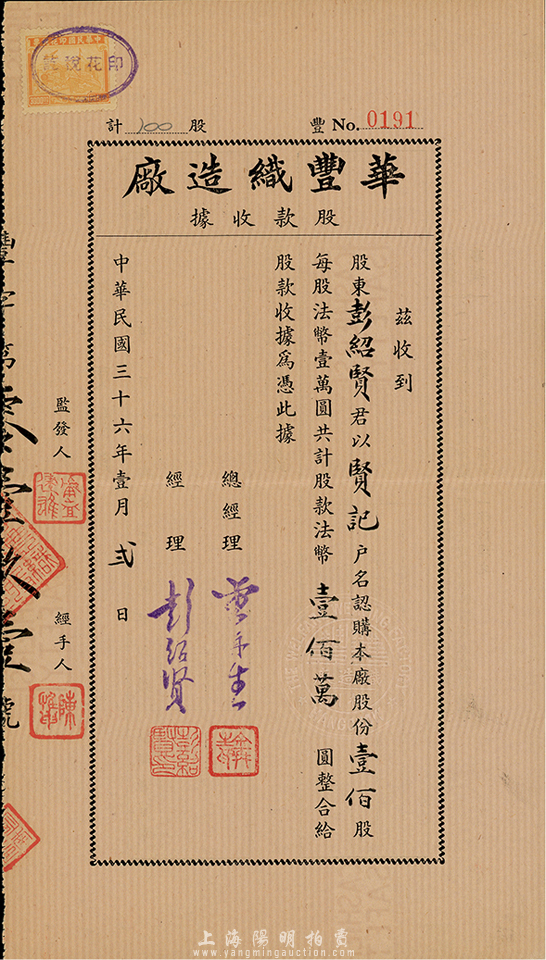 印花稅訖
計 100 股
豐 No. 0191
華豐織造廠
股款收據
茲收到
股東彭紹賢君以賢記户名認購本廠股份壹佰股
每股法幣壹萬圓共計股款法幣壹佰萬圓整合給
股款收據為憑此據
總經理
經理 彭紹賢
中華民國三十六年壹月弍日
監發人
經手人
豐字第零壹玖壹號
上海陽明拍賣
www.yangmingauction.com